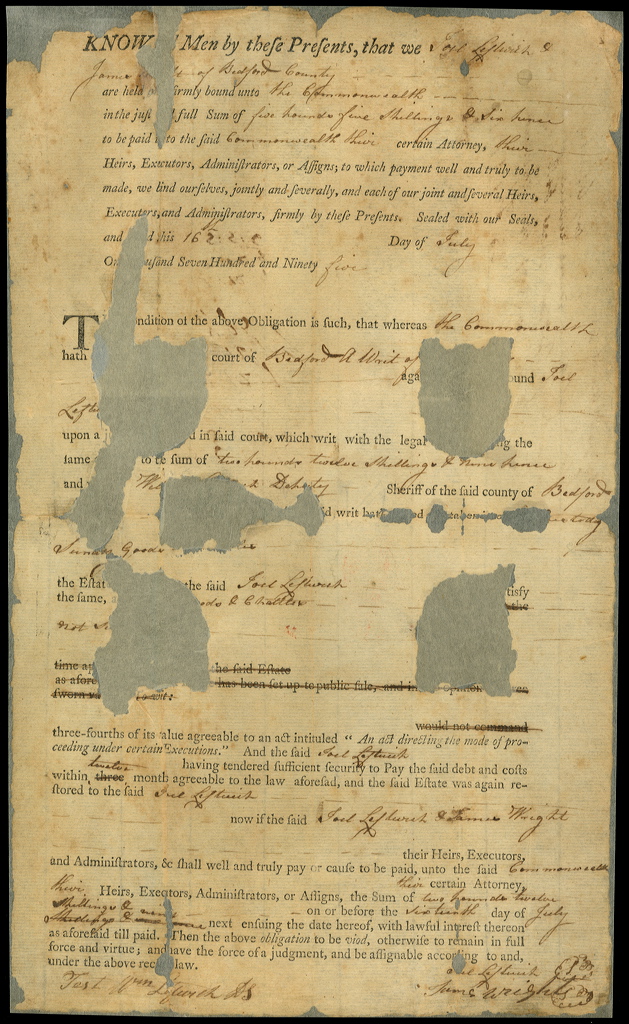 KNOW Men by these Presents, that we Joel Leftwich &
James of Bedford County
are held firmly bound unto the Commonwealth
in the just full Sum of five pounds five Shillings & Six pence
to be paid to the said Commonwealth their certain Attorney, their
Heirs, Executors, Administrators, or Assigns; to which payment well and truly to be
made, we bind ourselves, jointly and severally, and each of our joint and several Heirs,
Executors, and Administrators, firmly by these Presents. Sealed with our Seals,
and his 16 Day of July
Seven Hundred and Ninety five
ondition of the above Obligation is such, that whereas the Commonwealth
hath court of Bedford A Writ of
aga ound Joel
Leftw
upon a in said court, which writ with the legal the
same to be sum of two pounds twelve Shillings & nine pence
and Doherty Sheriff of the said county of Bedford
writ custody
Goods
the Estat the said Joel Leftwich tisfy
the same, & Chattles the
not
time ap he said Estate
as afore has been set up to public sale, and in
sworn
would not command
three-fourths of its value agreeable to an act intiuled " An act directing the mode of pro-
ceeding under certain Executions." And the said Joel Leftwich
twelve having tendered sufficient security to Pay the said debt and costs
within three month agreeable to the law aforesad, and the said Estate was again re-
stored to the said Joel Leftwich
now if the said Joel Leftwich & James Wright
their Heirs, Executors,
and Administrators, &c shall well and truly pay or cause to be paid, unto the said Commonwealth
their certain Attorney,
their Heirs, Executors, Administrators, or Assigns, the Sum of two pounds twelve
Shillings & nine on or before the Sixteenth day of July
Shillings & next ensuing the date hereof, with lawful interest thereon
as aforesaid till paid. Then the above obligation to be viod, otherwise to remain in full
force and virtue; and have the force of a judgment, and be assignable according to and,
under the above recited law.
Joel Leftwich
Test Wm Leftwich DS James Wright